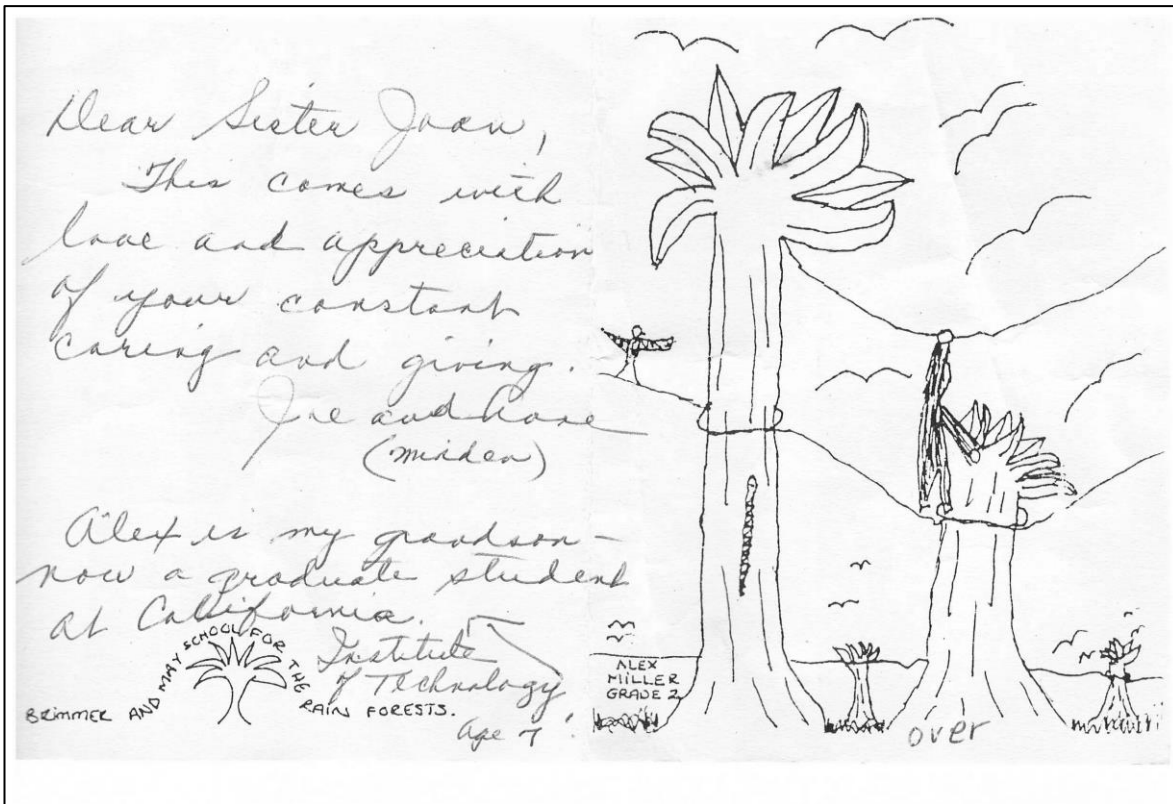 Dear Sister Joan,
This comes with
love and appreciation
of your constant
caring and giving.
Joe and
(Minden)
Alex is my grandson –
now a graduate student
at California.
Institute
of Technology
BRIMMER AND MAY SCHOOL FOR THE RAIN FORESTS.
age 7
ALEX
MILLER
GRADE 2
over